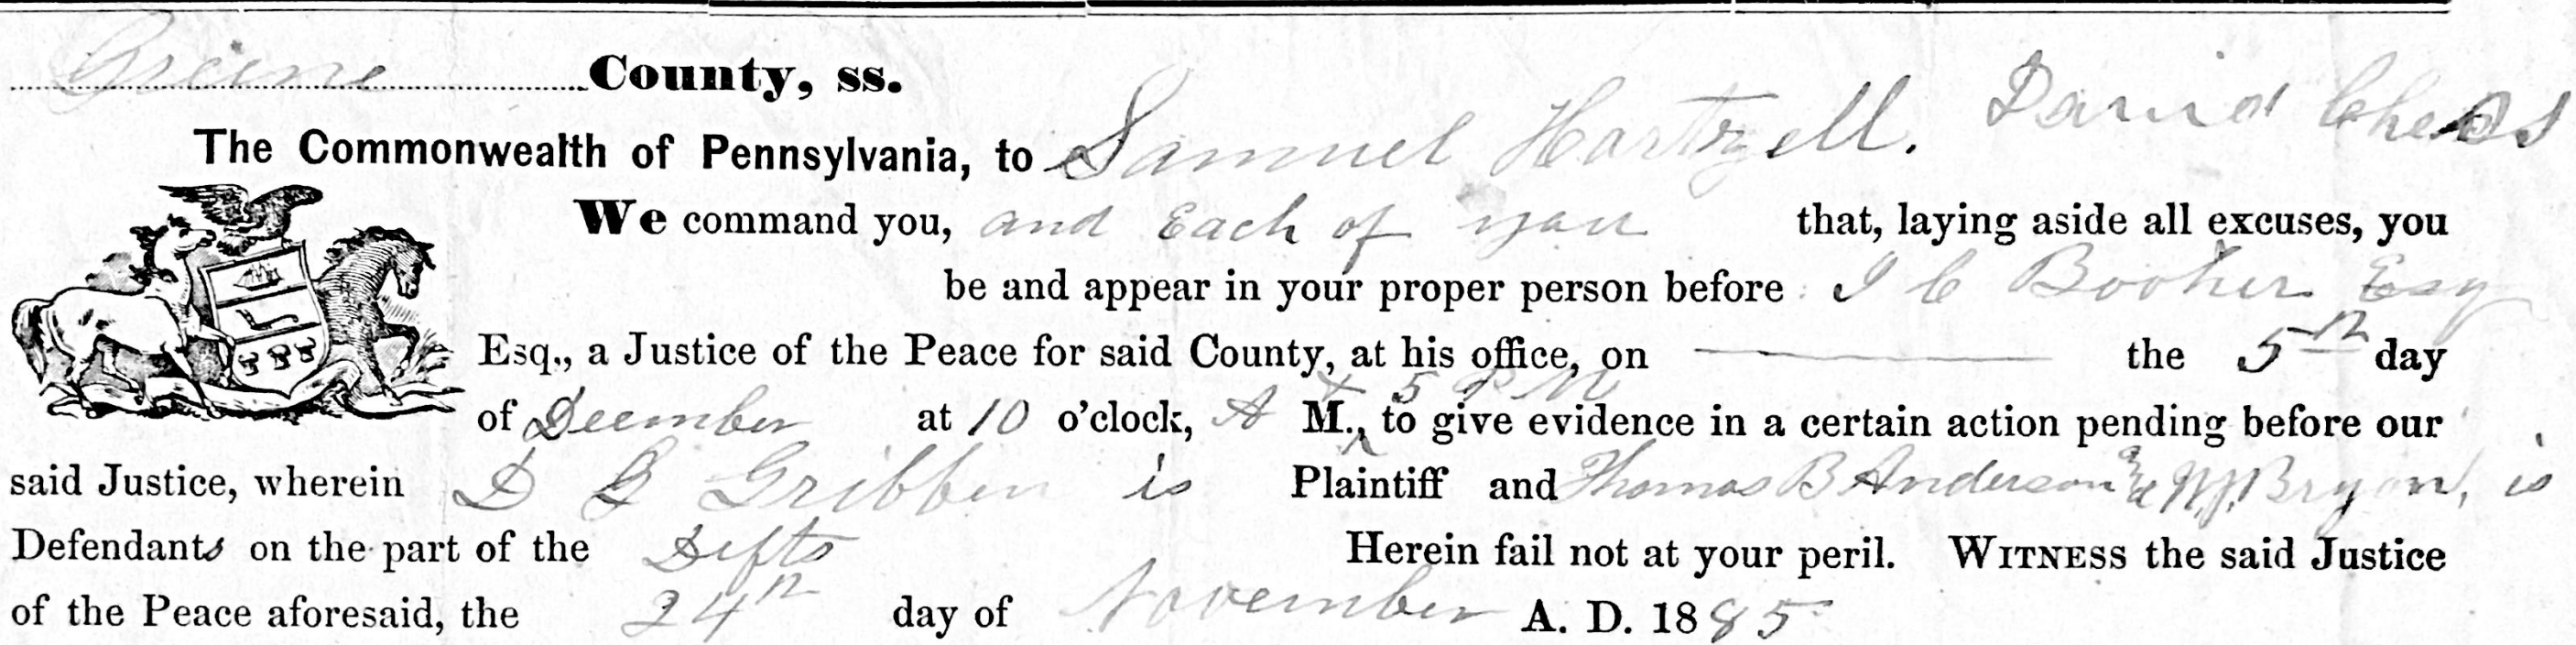 Greene County, ss.
The Commonwealth of Pennsylvania, to Samuel Hartzell. David
We command you, and Each of you that, laying aside all excuses, you
be and appear in your proper person before I C Booher Esq
Esq., a Justice of the Peace for said County, at his office, on the 5th day
& 5 P M
of December at 10 o'clock, A M., to give evidence in a certain action pending before our
said Justice, wherein D G Gribben is Plaintiff and Thomas B Anderson & Bryan, is
Defendants on the part of the Defts Herein fail not at your peril. WITNESS the said Justice
of the Peace aforesaid, the 24th day of November A. D. 1885